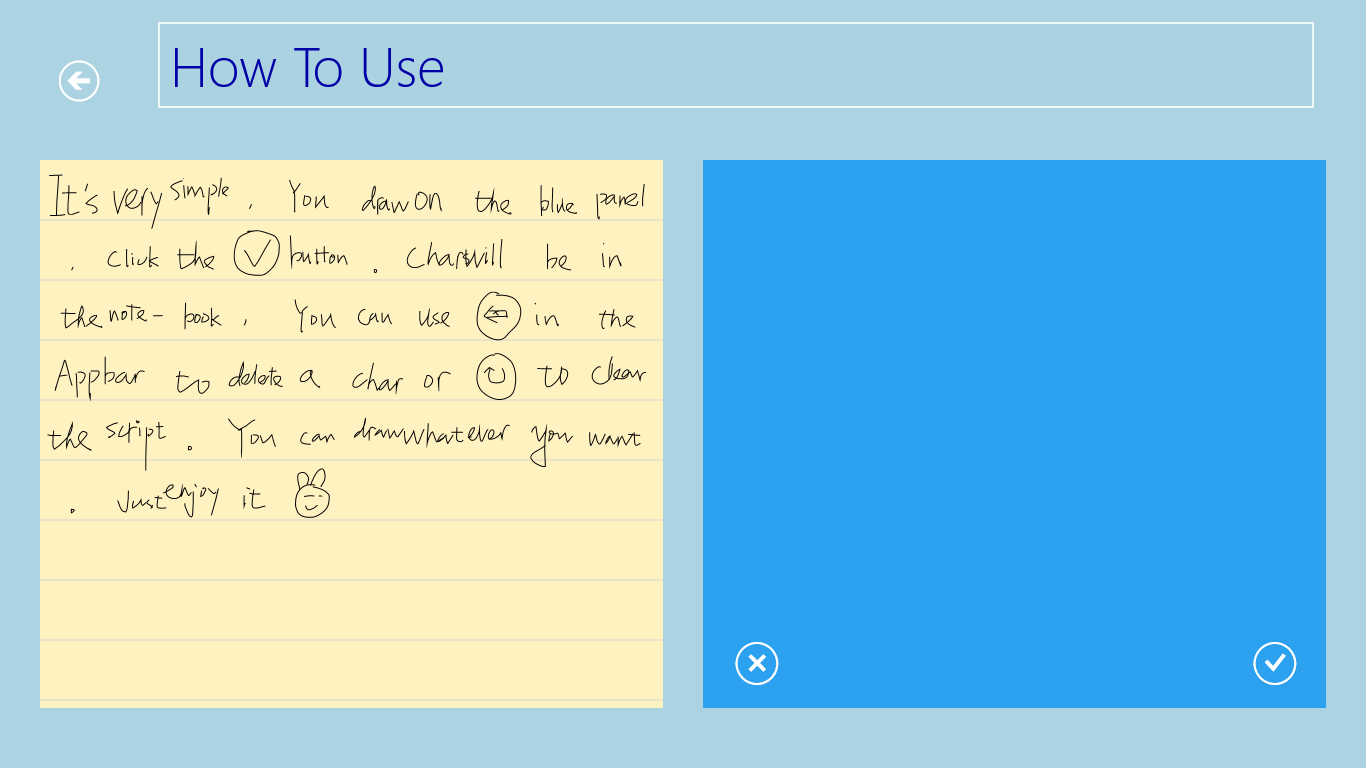 How To Use
It's very simple . You draw on the blue panel
. Click the button . Chars will be in
the note- book . You can use in the
Appbar to delete a char or to clear
the script . You can draw whatever you want
. Just enjoy it